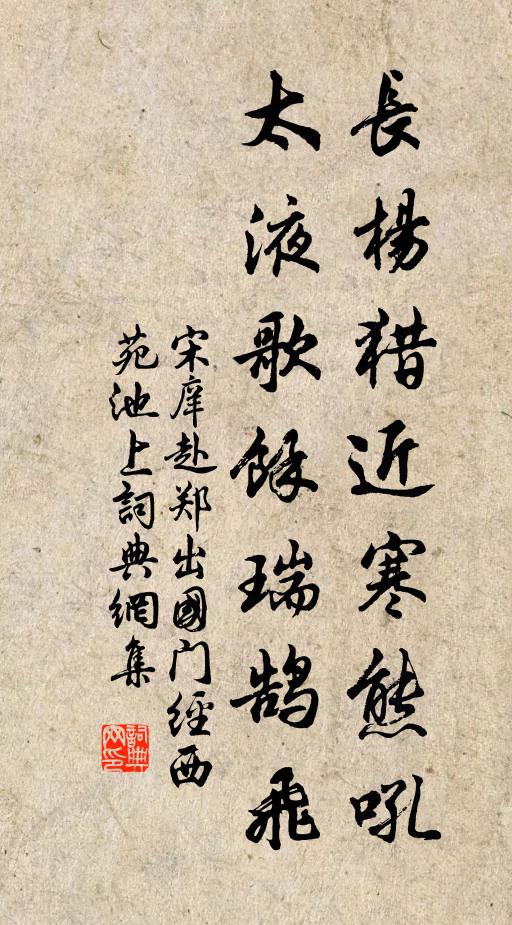 長楊猎近寒熊吼
太液歌餘瑞鹄飛
宋庠赴郑出國门經西
苑池上詞典網集
詞典網印